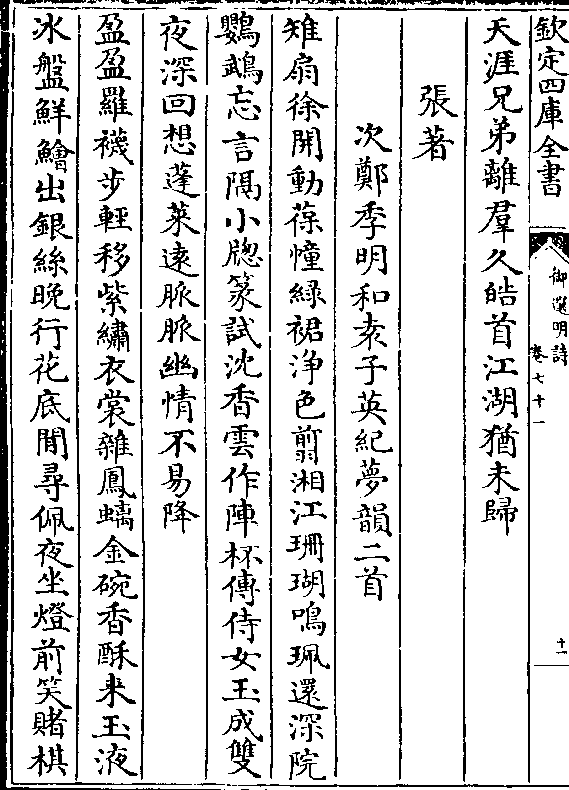 欽定四庫全書
御選明詩
卷七十一
十一
天涯兄弟離羣久皓首江湖猶未歸
張著
次鄭季明和袁子英紀夢韻二首
雉扇徐開動葆幢緑裙浄色翦湘江珊瑚鳴珮還深院
鸚鵡忘言隔小牕篆試沈香雲作陣杯傳侍女玉成雙
夜深回想蓬萊逺脈脈幽情不易降
盈盈羅襪步輕移紫繡衣裳雜鳳螭金碗香酥来玉液
冰盤鮮鱠出銀絲晚行花底閒尋佩夜坐燈前笑賭棋